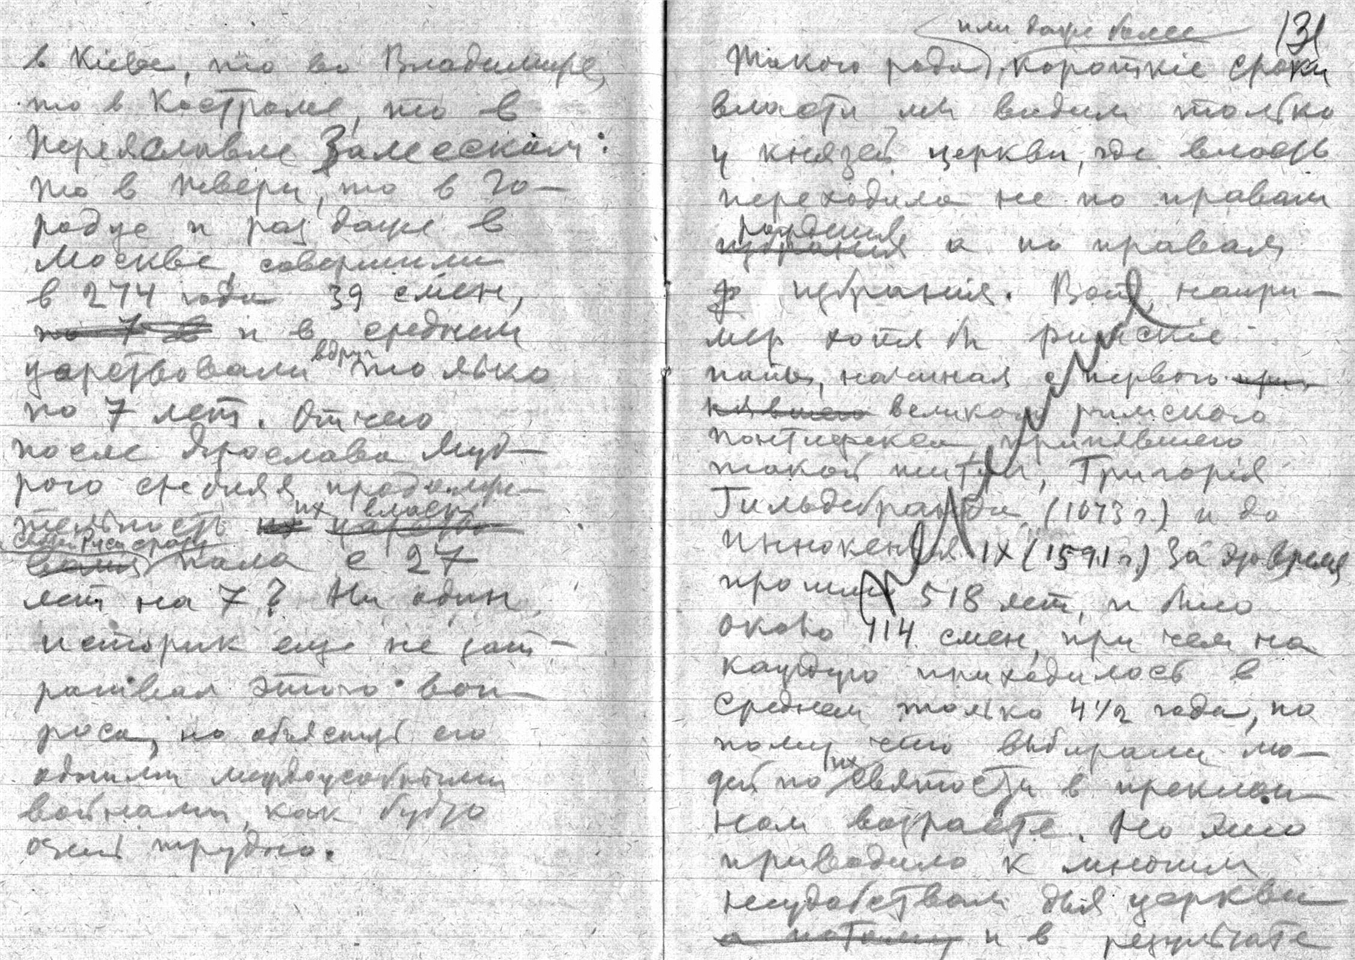 в Киеве, то во Владимире,
то в Костроме, то в
Переяславле Залесском:
то в Твери, то в Го-
родце и раз даже в
Москве, совершили
в 274 года 39 смен,
по 7 и в среднем
царствовали вдруг только
по 7 лет. Отчего
после Ярослава Муд-
рого средняя продолжи-
тельность их власти
Руси сразу
пала с 27
лет на 7? Ни один
историк еще не зат-
рагивал этого воп-
роса, но объяснить его
одними междоусобными
войнами, как будто
очень трудно.
131
или даже более
Такого рода, короткие сроки
власти мы видим только
у князей церкви, где власть
переходила не по правам
рождения
избрания а по правам
избрания. Вот, напри-
мер хотя бы римские
папы, начиная с первого
великого римского
понтифекса, принявшего
такой титул, Григория
Гильдебранда (1073 г.) и до
Иннокентия IX (1591 г.) За это время
прошло 518 лет, и было
около 114 смен, при чем на
каждую приходилось в
среднем только 4 1/2 года, по
тому что выбирали лю-
дей по их святости в преклон-
ном возрасте. Но это
приводило к многим
неудобствам для церкви
а потому и в результате